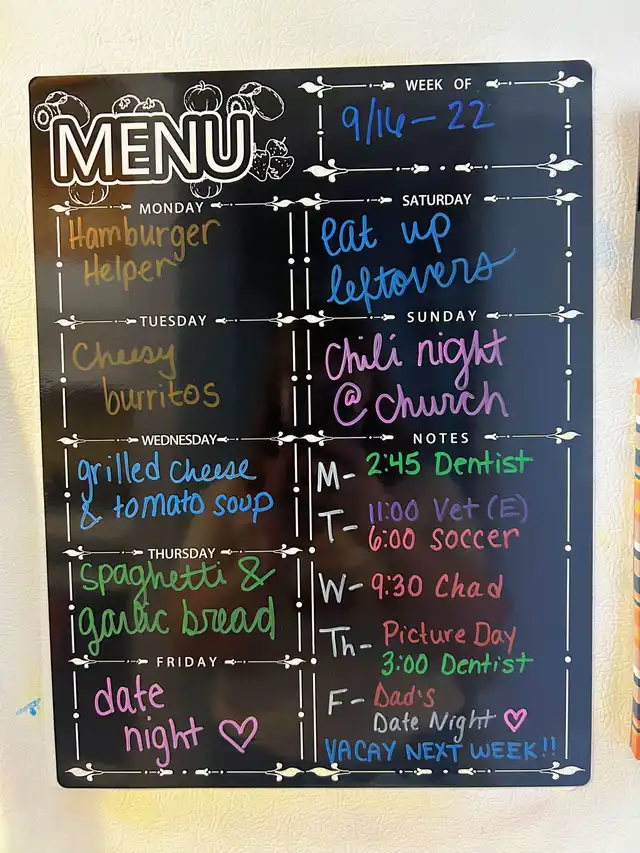 MENU
WEEK OF
9/16-22
MONDAY
Hamburger
Helper
TUESDAY
Cheesy
burritos
WEDNESDAY
grilled cheese
& tomato soup
THURSDAY
spaghetti &
garlic bread
FRIDAY
date
night ♡
SATURDAY
eat up
leftovers
SUNDAY
Chili night
@ church
NOTES
M- 2:45 Dentist
T- 11:00 Vet (E)
6:00 Soccer
W- 9:30 Chad
Th- Picture Day
3:00 Dentist
F- Dad's
Date Night ♡
VACAY NEXT WEEK!!